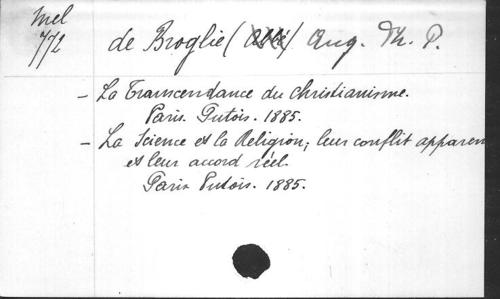 Mel
772
de Broglie (Abbé) Aug. Th. P.
- La Transcendance du Christianisme.
Paris. Putois. 1885.
- La Science et la Religion; leur conflit apparen
et leur accord réel.
Paris Putois. 1885.